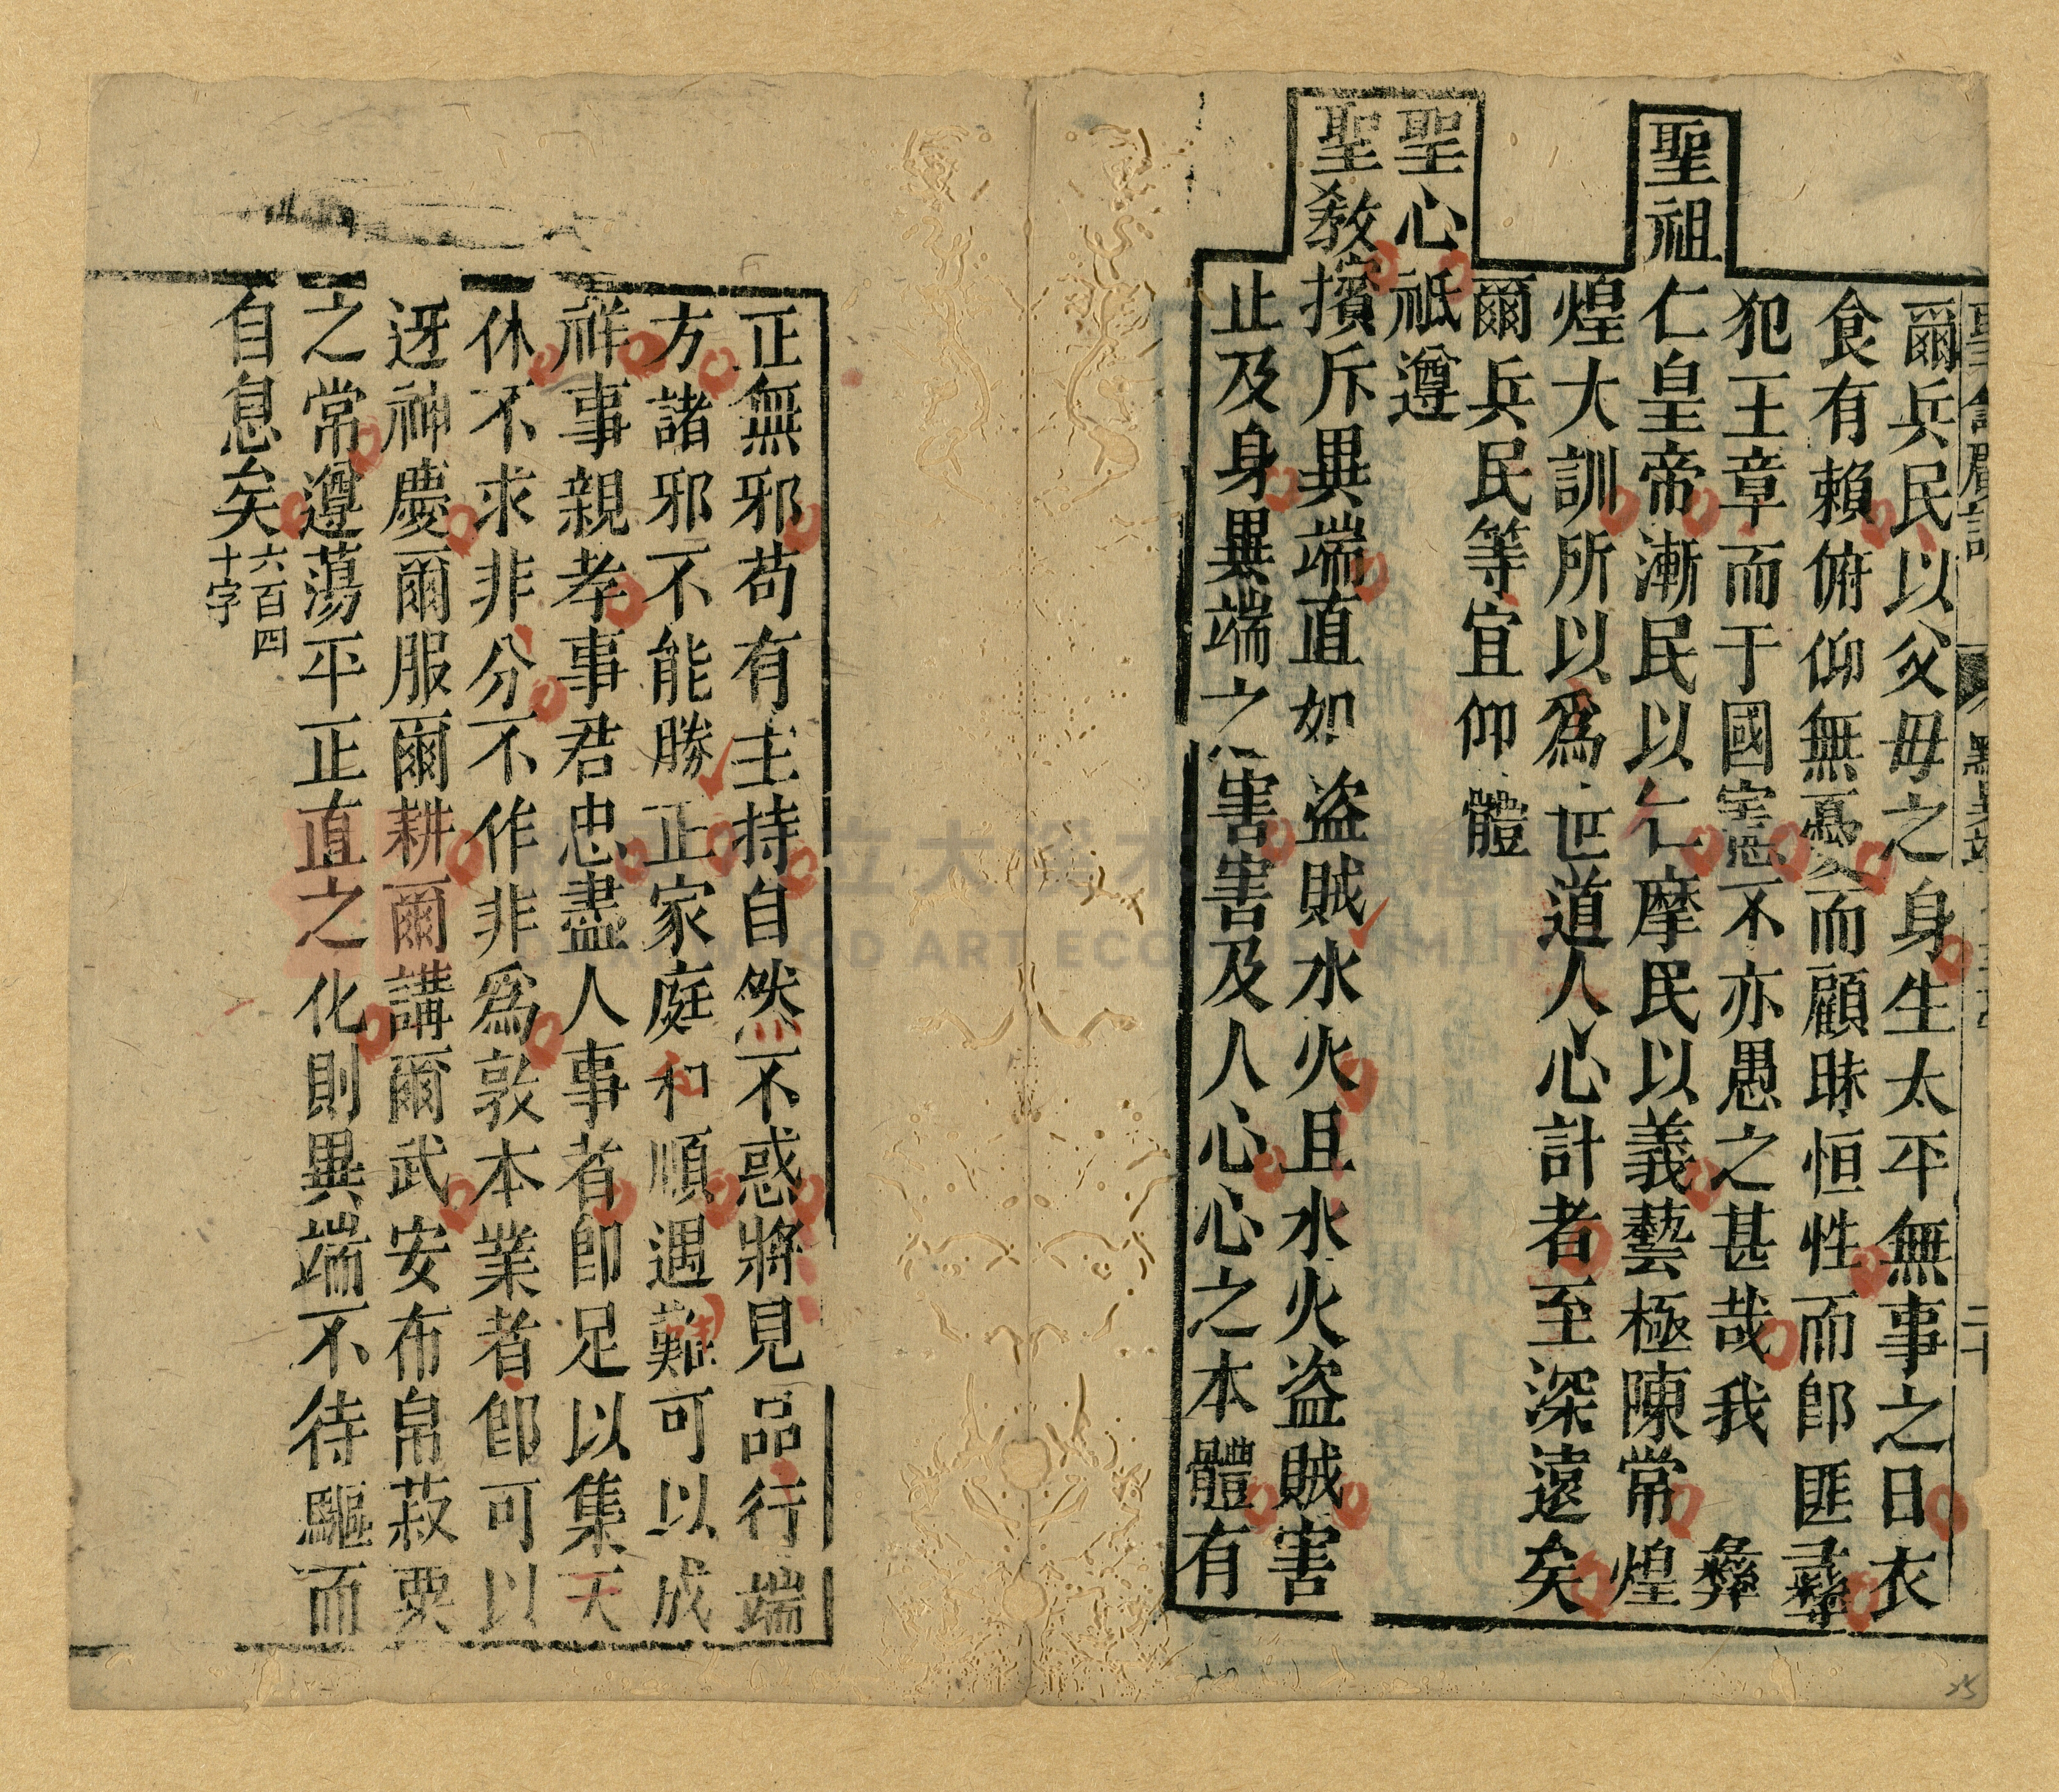 爾兵民以父毋之身生太平無事之日衣
食有賴俯仰無憂而顧昧恒性而卽匪彞
犯王章而于國憲不亦愚之甚哉我
聖祖仁皇帝漸民以仁摩民以義藝極陳常煌
煌大訓所以爲世道人心計者至深遠矣
爾兵民等宜仰體
聖心祗遵
聖敎擯斥異端直如盜賊水火且水火盜賊害
止及身異端之害害及人心心之本體有
正無邪苟有主持自然不惑將見品行端
方諸邪不能勝正家庭和順遇難可以成
祥事親孝事君忠盡人事者卽足以集天
休不求非分不作非爲敦本業者卽可以
迓神慶爾服爾耕爾講爾武安布帛菽粟
之常遵蕩平正直之化則異端不待驅而
自息矣
六百四
十字
二十